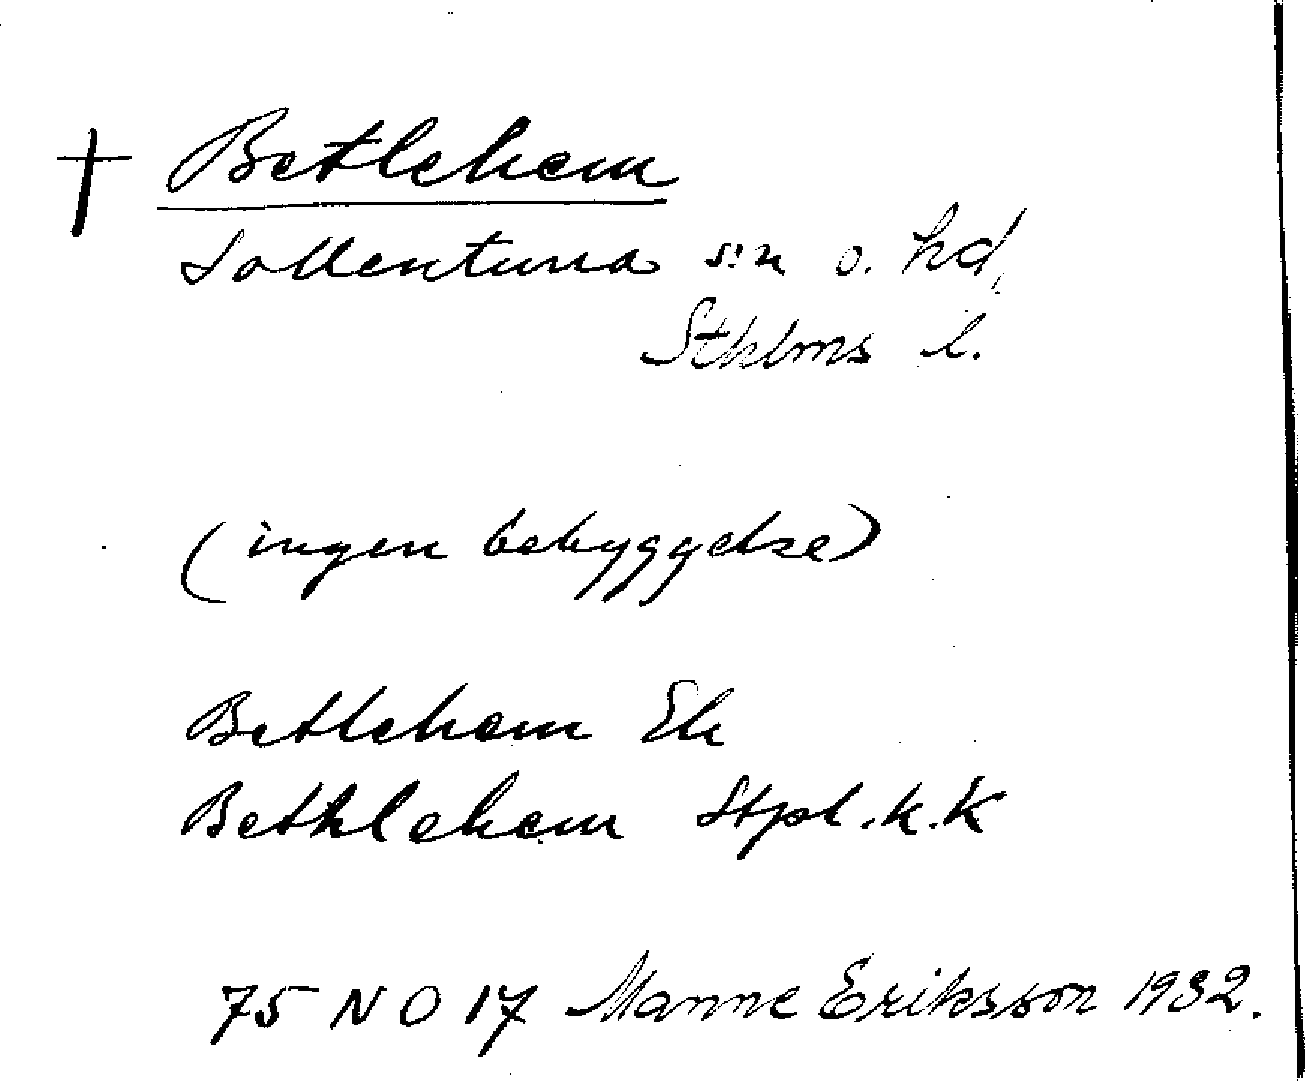 † Betlehem
Sollentuna s:n o. hd,
Sthlms l.
(ingen bebyggelse)
Betlehem Ek
Bethlehem Stpl.k.K
75 NO 17 Manne Eriksson 1932.